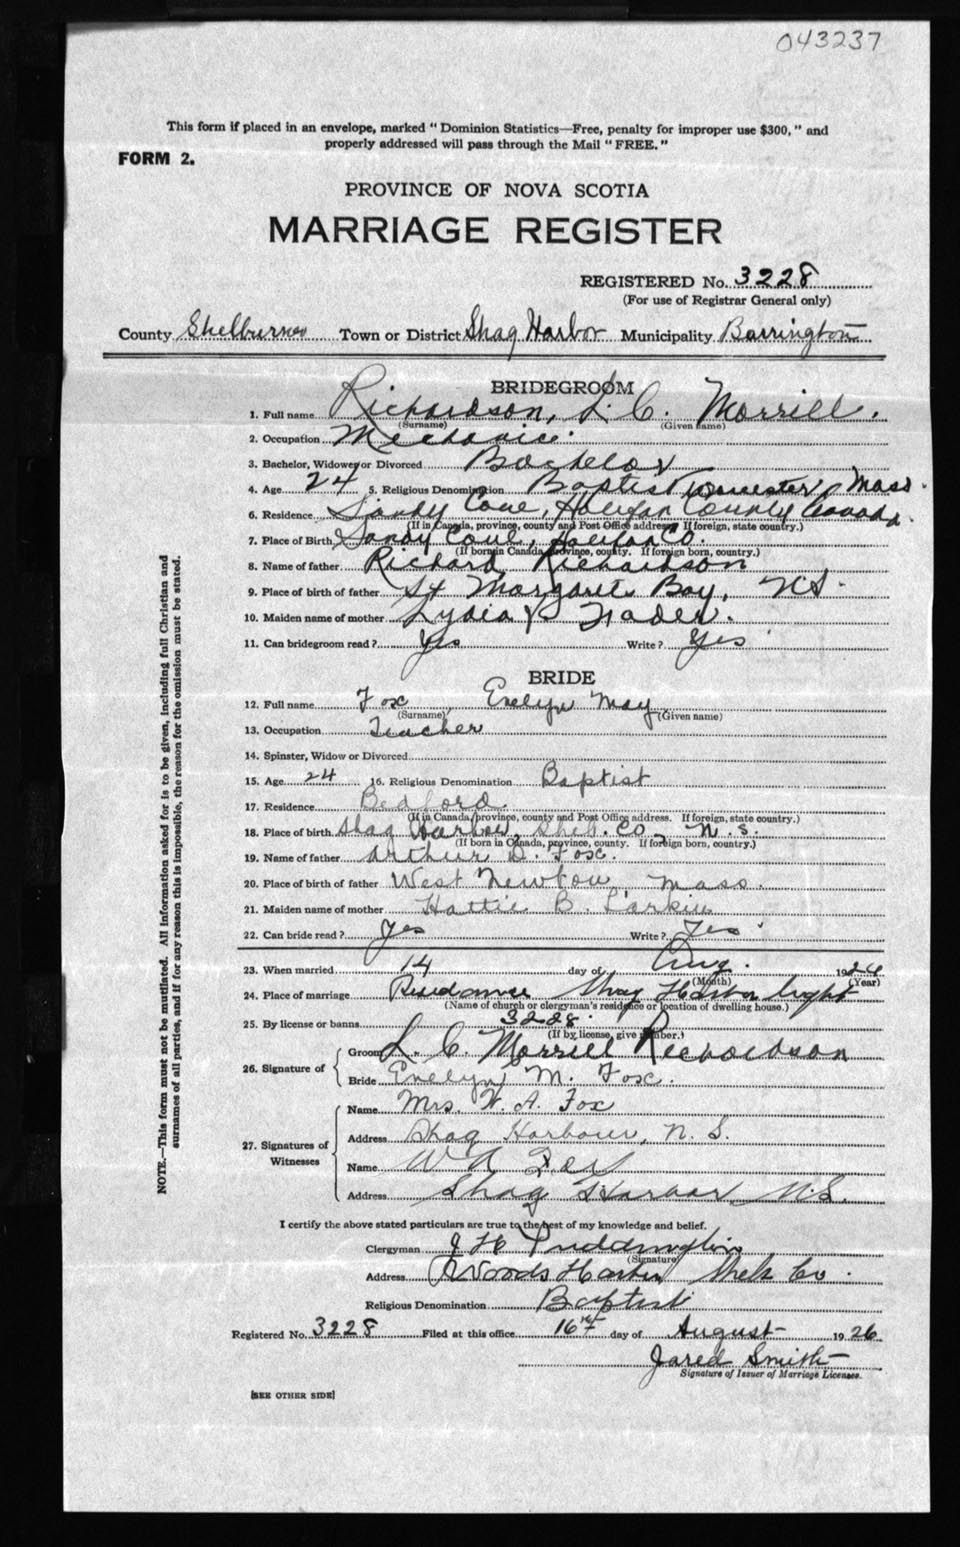 043237
This form if placed in an envelope, marked "Dominion Statistics—Free, penalty for improper use $300," and
properly addressed will pass through the Mail "FREE."
FORM 2.
PROVINCE OF NOVA SCOTIA
MARRIAGE REGISTER
REGISTERED No. 3228
(For use of Registrar General only)
County Shelburne Town or District Shag Harbor Municipality Barrington
BRIDEGROOM
1. Full name Richardson, L. C. Morrill.
(Surname) (Given name)
2. Occupation Mechanic.
3. Bachelor, Widower or Divorced Bachelor
4. Age 24 5. Religious Denomination Baptist Worcester Mass.
6. Residence Sandy Cove, Halifax County Canada.
(If in Canada, province, county and Post Office address. If foreign, state country.)
7. Place of Birth Sandy Cove, Halifax Co.
(If born in Canada, province, county. If foreign born, country.)
8. Name of father Richard Richardson
9. Place of birth of father St Margarets Bay, NS.
10. Maiden name of mother Lydia Frader.
11. Can bridegroom read? Yes Write? Yes
BRIDE
12. Full name Fox Evelyn May
(Surname) (Given name)
13. Occupation Teacher
14. Spinster, Widow or Divorced
15. Age 24 16. Religious Denomination Baptist
17. Residence Bedford
(If in Canada, province, county and Post Office address. If foreign, state country.)
18. Place of birth Shag Harbor, Shel. Co, N. S.
(If born in Canada, province, county. If foreign born, country.)
19. Name of father Arthur D. Fox.
20. Place of birth of father West Newton, Mass.
21. Maiden name of mother Hattie B. Larkin
22. Can bride read? Yes Write? Yes
23. When married 14 day of Aug. 1926
(Month) (Year)
24. Place of marriage Residence Shag Harbor Light
(Name of church or clergyman's residence or location of dwelling house.)
25. By license or banns 3228.
(If by license, give number.)
26. Signature of
Groom L. C. Morrill Richardson
Bride Evelyn M. Fox.
27. Signatures of Witnesses
Name Mrs. W. A. Fox
Address Shag Harbour, N. S.
Name W A
Address Shag Harbor N.S.
I certify the above stated particulars are true to the best of my knowledge and belief.
Clergyman J H Puddington
(Signature)
Address Woods Harbor Shelb Co.
Religious Denomination Baptist
Registered No. 3228 Filed at this office 16th day of August 1926
Jared Smith
Signature of Issuer of Marriage Licenses.
[SEE OTHER SIDE]
NOTE.—This form must not be mutilated. All information asked for is to be given, including full Christian and
surnames of all parties, and if for any reason this is impossible, the reason for the omission must be stated.